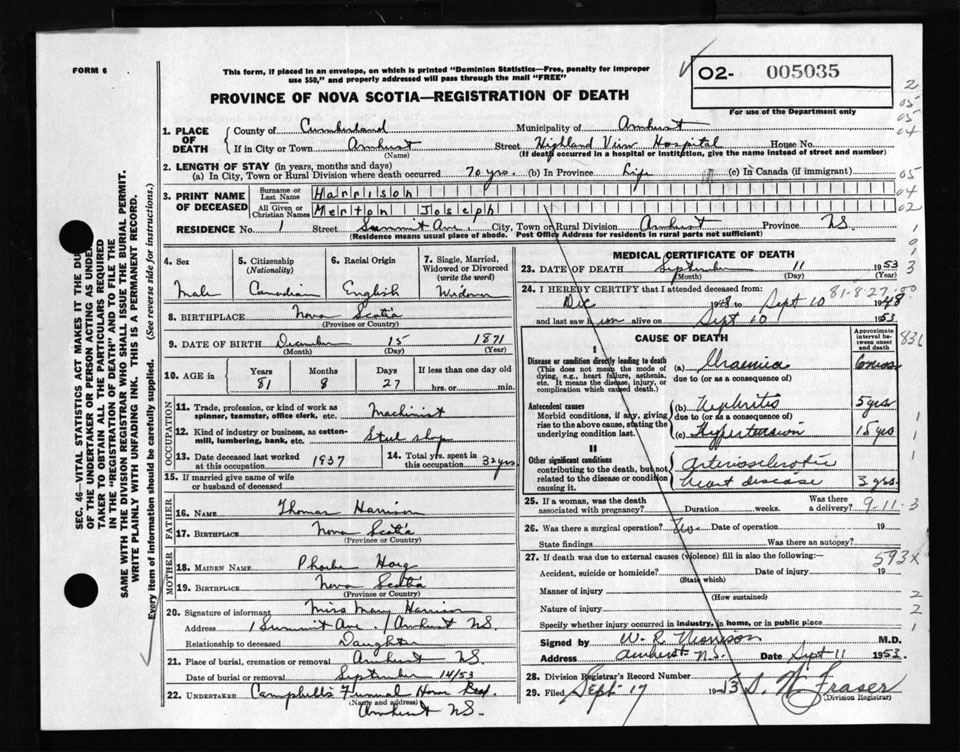 FORM 6
This form, if placed in an envelope, on which is printed "Dominion Statistics—Free, penalty for improper
use $50," and properly addressed will pass through the mail "FREE"
PROVINCE OF NOVA SCOTIA—REGISTRATION OF DEATH
O2- 005035
For use of the Department only
2
05
05
04
05
04
02
1. PLACE OF DEATH
County of Cumberland Municipality of Amherst
If in City or Town Amherst Street Highland View Hospital House No.
(Name) (If death occurred in a hospital or institution, give the name instead of street and number)
2. LENGTH OF STAY (in years, months and days)
(a) In City, Town or Rural Division where death occurred 70 yrs. (b) In Province Life (c) In Canada (if immigrant)
3. PRINT NAME OF DECEASED
Surname or Last Name Harrison
All Given or Christian Names Merton Joseph
RESIDENCE No. 1 Street Summit Ave. City, Town or Rural Division Amherst Province N.S.
(Residence means usual place of abode. Post Office Address for residents in rural parts not sufficient)
4. Sex
Male
5. Citizenship
(Nationality)
Canadian
6. Racial Origin
English
7. Single, Married,
Widowed or Divorced
(write the word)
Widower
8. BIRTHPLACE Nova Scotia
(Province or Country)
9. DATE OF BIRTH December 15 1871
(Month) (Day) (Year)
10. AGE in
Years Months Days If less than one day old
81 8 27 hrs. or min.
OCCUPATION
11. Trade, profession, or kind of work as
spinner, teamster, office clerk, etc. Machinist
12. Kind of industry or business, as cotton-
mill, lumbering, bank, etc. Steel shop
13. Date deceased last worked
at this occupation 1937
14. Total yrs. spent in
this occupation 32 yrs.
15. If married give name of wife
or husband of deceased
FATHER
16. NAME Thomas Harrison
17. BIRTHPLACE Nova Scotia
(Province or Country)
MOTHER
18. MAIDEN NAME Phoebe Hoeg
19. BIRTHPLACE Nova Scotia
(Province or Country)
20. Signature of informant Miss Mary Harrison
Address 1 Summit Ave. / Amherst N.S.
Relationship to deceased Daughter
21. Place of burial, cremation or removal Amherst N.S.
Date of burial or removal September 14/53
22. UNDERTAKER Campbell's Funeral Home Reg'd.
(Name and address)
Amherst N.S.
MEDICAL CERTIFICATE OF DEATH
23. DATE OF DEATH September 11 1953
(Month) (Day)
24. I HEREBY CERTIFY that I attended deceased from: 81-8-27-00
Dec 1948 to Sept 10 1948
and last saw him alive on Sept 10 1953
CAUSE OF DEATH
Approximate interval between onset and death
I
Disease or condition directly leading to death
(This does not mean the mode of
dying, e.g., heart failure, asthenia,
etc. It means the disease, injury, or
complication which caused death.)
(a) Uraemia 6 mos
due to (or as a consequence of)
Antecedent causes
Morbid conditions, if any, giving
rise to the above cause, stating the
underlying condition last.
(b) Nephritis 5 yrs
due to (or as a consequence of)
(c) Hypertension 15 yrs
II
Other significant conditions
contributing to the death, but not
related to the disease or condition
causing it.
arteriosclerotic
heart disease 3 yrs.
25. If a woman, was the death
associated with pregnancy? Duration weeks. Was there
a delivery?
9-11-3
26. Was there a surgical operation? No Date of operation 19
State findings Was there an autopsy?
27. If death was due to external causes (violence) fill in also the following:—
593X
Accident, suicide or homicide? Date of injury 19
(State which)
Manner of injury
(How sustained)
Nature of injury
Specify whether injury occurred in industry, in home, or in public place
Signed by W. R. Morrison M.D.
Address Amherst N.S. Date Sept 11 1953.
28. Division Registrar's Record Number
29. Filed Sept 17 1953 S. W. Fraser
(Division Registrar)
SEC. 46—VITAL STATISTICS ACT MAKES IT THE DU
OF THE UNDERTAKER OR PERSON ACTING AS UNDER
TAKER TO OBTAIN ALL THE PARTICULARS REQUIRED
IN THE "REGISTRATION OF DEATH" AND TO FILE THE
SAME WITH THE DIVISION REGISTRAR WHO SHALL ISSUE THE BURIAL PERMIT.
WRITE PLAINLY WITH UNFADING INK. THIS IS A PERMANENT RECORD.
Every item of information should be carefully supplied. (See reverse side for instructions.)